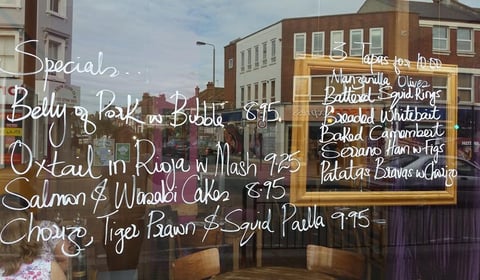 Specials...
Belly of Pork w Bubble 8.95
Oxtail in Rioja w Mash 9.25
Salmon & Wasabi Cakes 8.95
Chorizo, Tiger Prawn & Squid Paella 9.95
3 Tapas for 10.00
Manzanilla Olives
Battered Squid Rings
Breaded Whitebait
Baked Camembert
Serrano Ham w Figs
Patatas Bravas w Chorizo